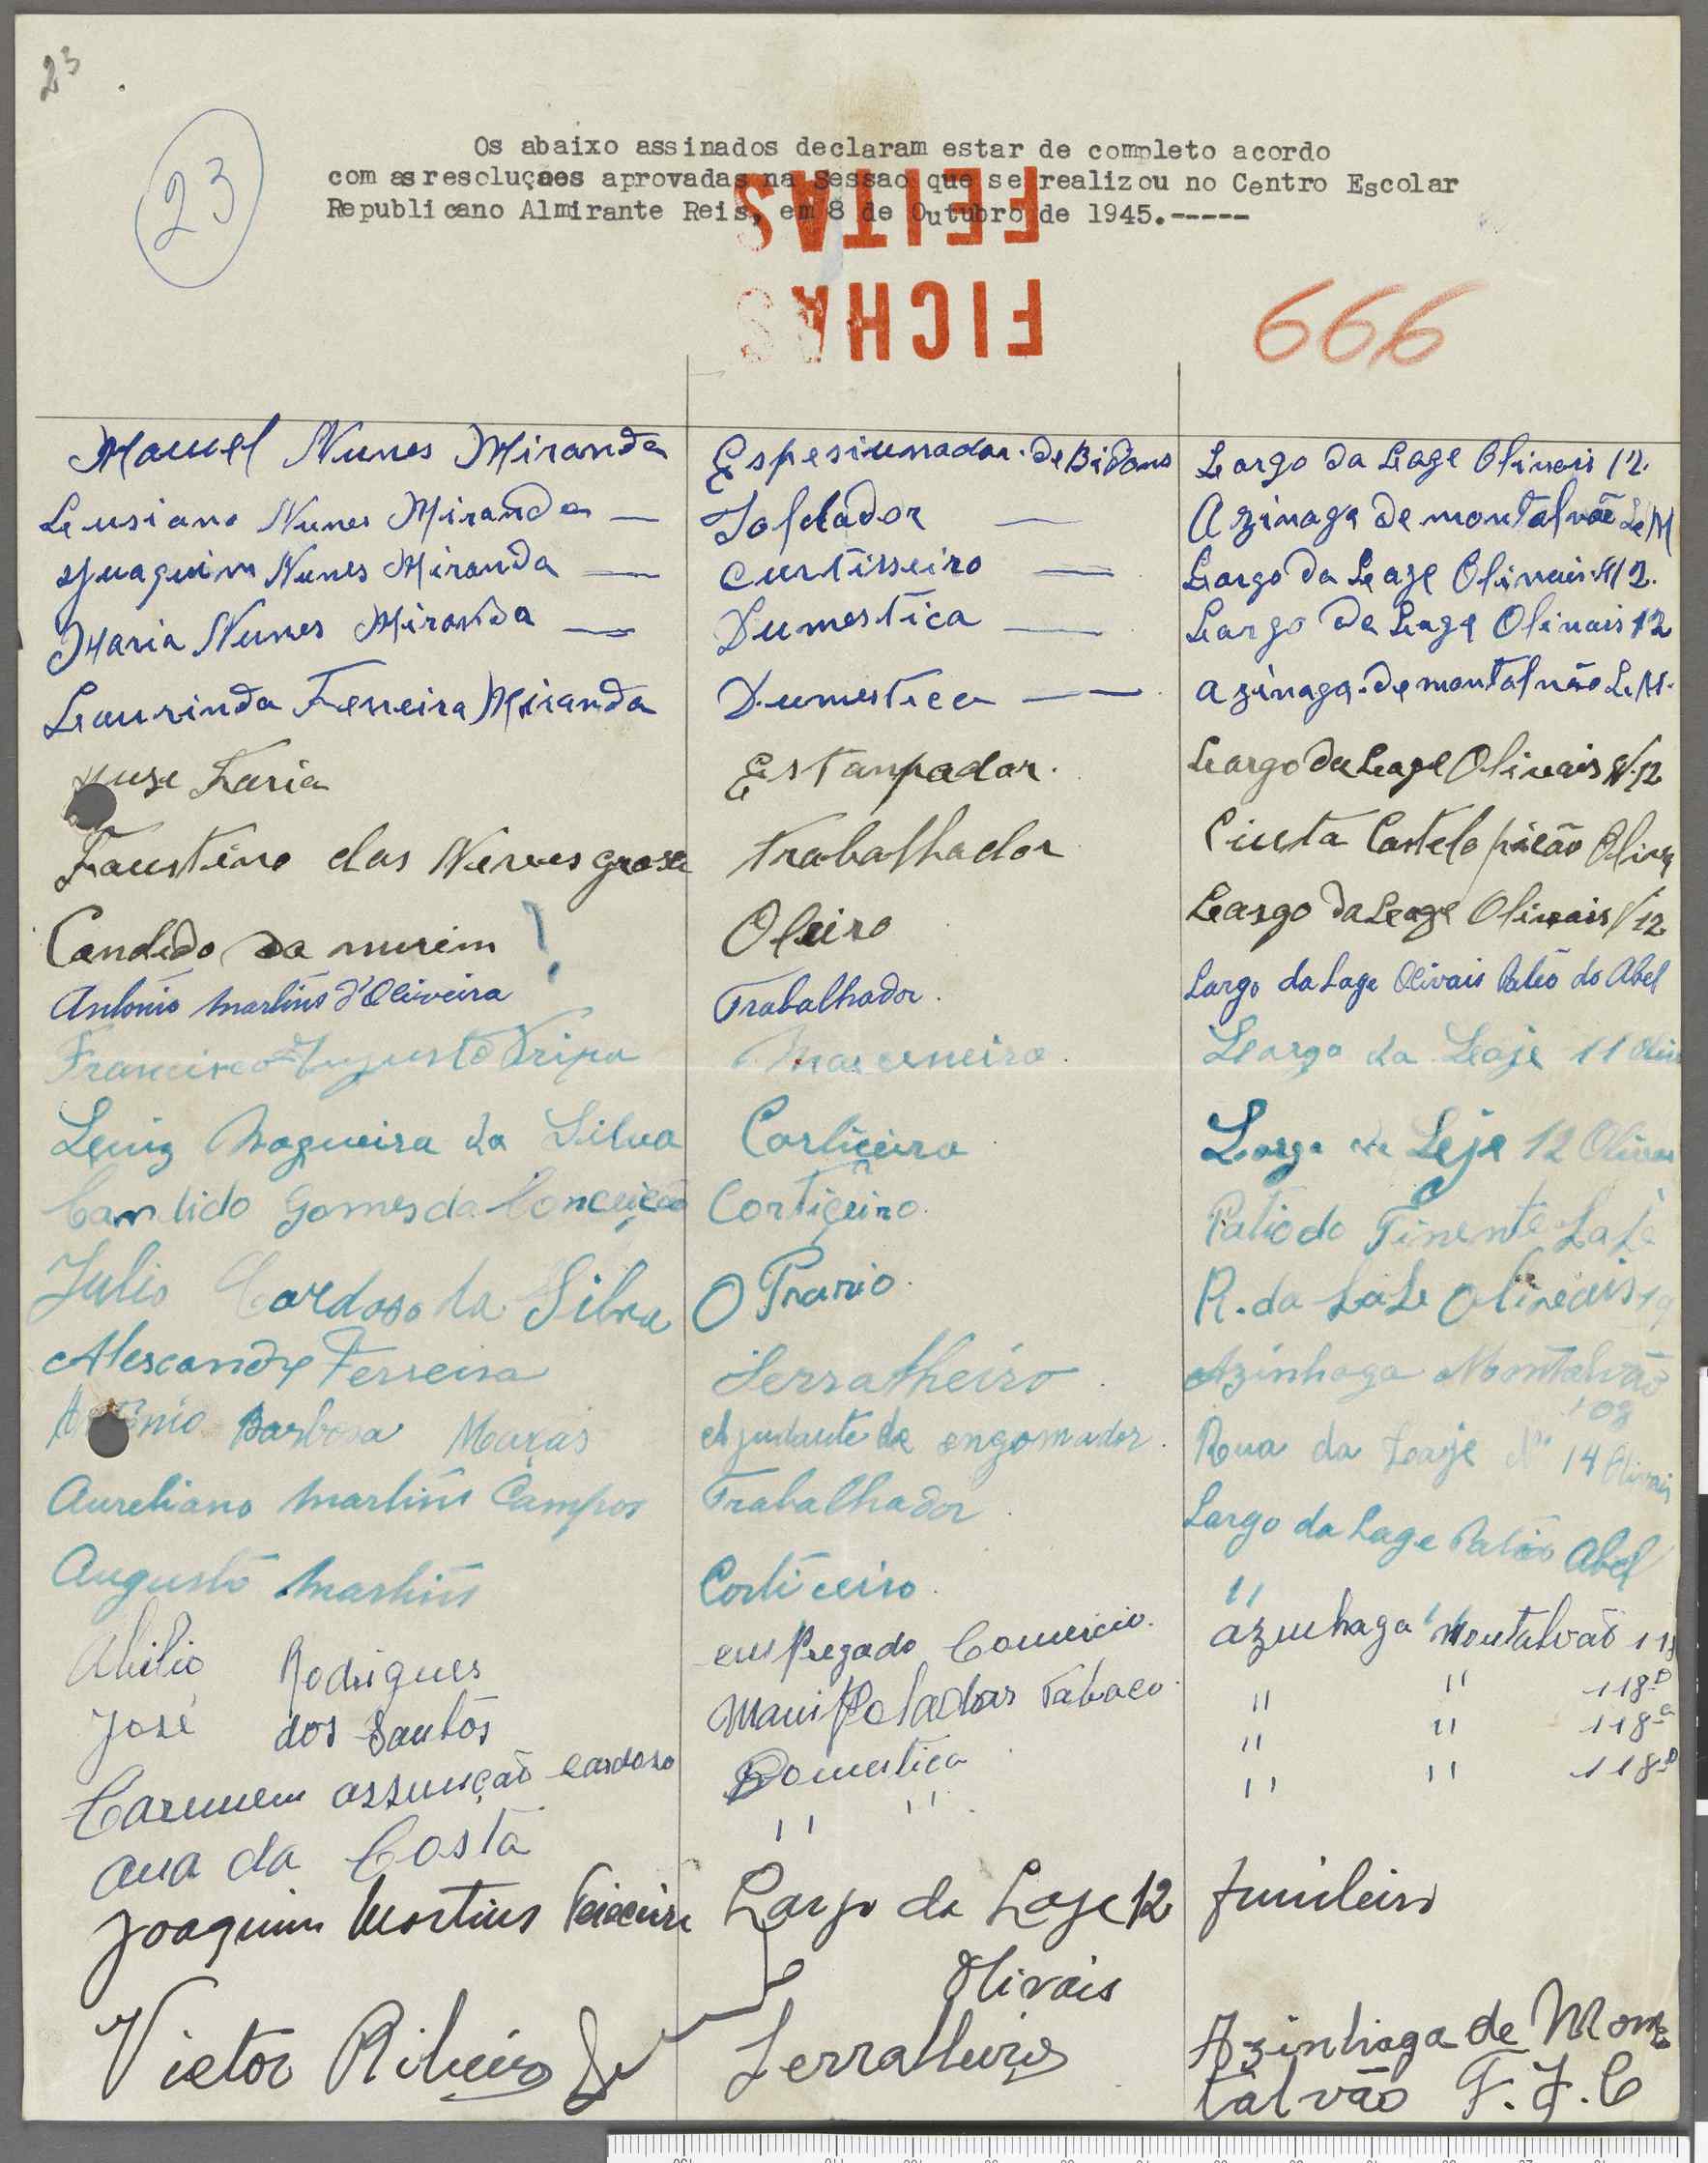 23
23
Os abaixo assinados declaram estar de completo acordo
com as resoluçoes aprovadas na Sessao que se realizou no Centro Escolar
Republicano Almirante Reis, em 8 de Outubro de 1945.-----
FICHAS
FEITAS
666
Manuel Nunes Miranda Espesiunador de Bidons Largo da Lage Olivais 12.
Lusiano Nunes Miranda — Soldador — Azinaga de montalvão L.M
Juaquim Nunes Miranda — Curtisseiro — Largo da Lage Olivais 12.
Maria Nunes Miranda — Dumestica — Largo da Lage Olivais 12
Laurinda Ferreira Miranda Dumestica — azinaga de montalvão L.M.
Juse Faria Estanpador. Largo da Lage Olivais N.12
Faustino das Neves Trabalhador Castelo picão
Candido da Oleiro Largo da Lage Olivais 12
António Martins d'Oliveira Trabalhador. Largo da Lage Olivais Patio do Abel
Francisco Augusto Marceneiro. Largo da Laje 11
Luiz Nogueira da Silva Corticeiro Largo da Leje 12
Candido Gomes da Conceição Cortiçeiro. Patio do Tinente
Julio Cardoso da Silva O Prario. R. da Olivais
Alexandre Ferreira Serralheiro. Azinhaga Montalvão
108
António Barbosa Ajudante de engomador. Rua da Laje Nº 14 Olivais
Aureliano Martins Campos Trabalhador. Largo da Lage Patio Abel
Augusto Martins Corticeiro. "
Abilio Rodrigues empregado Comercio. azinhaga Montalvão
José dos Santos Manipolador Tabaco. " " 118
Carmem assunção cardoso Domestica " " 118
Ana da Costa " " " " 118
Joaquim Martins Teixeira Largo da Laje 12 funileiro
Olivais
Victor Ribeiro Serralheiro Azinhaga de Mon
talvão F.J.C